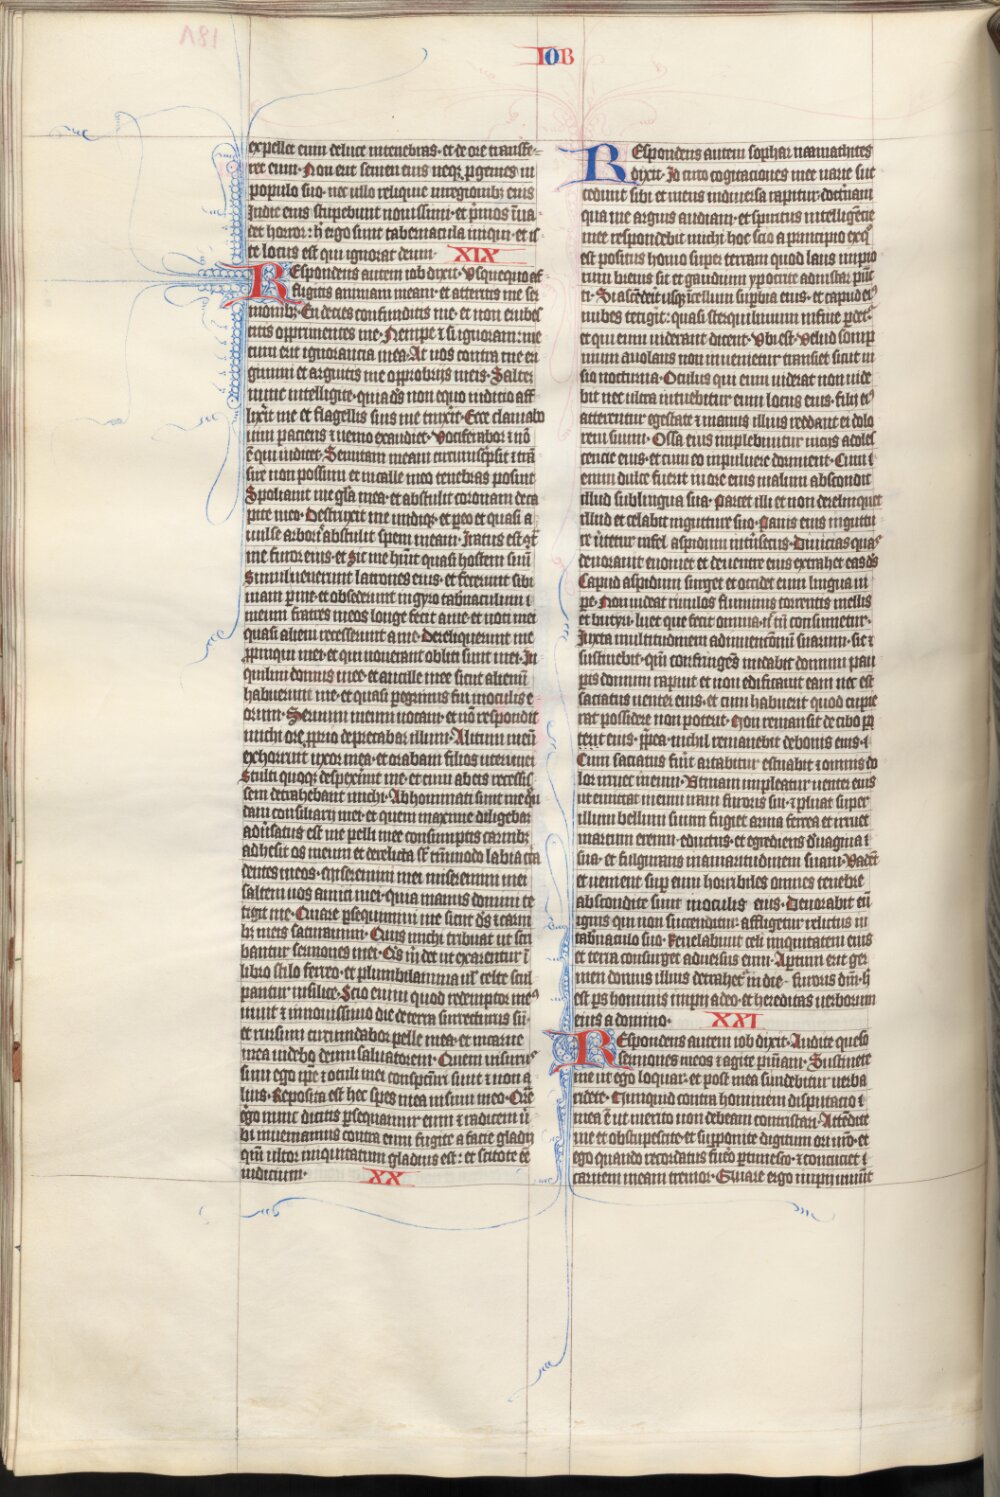 IOB
expellet eum de luce in tenebras · et de orbe transfe-
ret eum · Non erit semen eius neqꝫ ꝓgenies in
populo suo · nec ulle reliquie in regionibꝫ eius
In die eius stupebunt nouissimi · et p̃mos īua-
det horror : h̄ ergo sunt tabernacula iniqui · et is
te locus est qui ignorat deum · XIX
REspondens autem iob dixit · Vsquequo af
fligitis animam meam · et atteritis me ser
monibꝫ · En decies confunditis me · et non erubes
citis opprimentes me · Nempe ⁊ si ignoraui : me
cum erit ignorancia mea · At uos contra me eri
gimini et arguitis me opprobrijs meis · Saltem
nunc intelligite · quia dn̄s non equo iudicio aff
lixit me et flagellis suis me cinxit · Ecce clamabo
uim paciens ⁊ nemo exaudiet · Vociferabor ⁊ nō
ē qui iudicet · Semitam meam circumsepsit ⁊ trā
sire non possum et in calle meo tenebras posuit
Spoliauit me gl̄a mea · et abstulit coronam de ca
pite meo · Destruxit me undiqꝫ · et ꝑeo et quasi a
uulse arbori abstulit spem meam · Iratus est ɔ̄t̄
me furor eius · et sic me habuit quasi hostem suū
Simul uenerunt latrones eius · et fecerunt sibi
uiam ꝑ me · et obsederunt in gyro tabnaculum ⁊
meum fratres meos longe fecit a me · et noti mei
quasi alieni recesserunt a me · Dereliquerunt me
ꝓpinqui mei · et qui nouerant obliti sunt mei · In
quilini domus mee · et ancille mee sicut alienū
habuerunt me · et quasi pegrinus fui in oculis e-
orum · Seruum meum uocaui · et nō respondit
michi ore ꝓprio deprecabar illum · Alitum meū
exhorruit uxor mea · et orabam filios uteri mei
Stulti quoqꝫ despexerunt me · et cum ab eis recessis
sem detrahebant michi · Abhominati sunt me q̄n
dam consiliarij mei · et quem maxime diligebam
aduersatus est me pelli mee consumptis carnibꝫ
adhesit os meum et derelicta st̄ tm̄modo labia cir̄
dentes meos · Miseremini mei miseremini mei
saltem uos amici mei · quia manus domini te
tigit me · Quare ꝑsequimini me sicut ds̄ ⁊ carni
bꝫ meis saturamini · Quis michi tribuat ut scri
bantur sermones mei · Qis m̄ det ut exarentur ī
libro stilo ferreo · et plumbi lamina ul̓ celte scul
pantur in silice · Scio enim quod redemptor meꝰ
uiuit ⁊ in nouissimo die de terra surrecturus sū ·
et rursum circumdabor pelle mea · et in carne
mea uidebo deum saluatorem · Quem uisurꝰ
sum ego ip̄e ⁊ oculi mei conspecturi sunt ⁊ non a
lius · Reposita est hec spes mea in sinu meo · Qr̄e
ergo nunc dicitis ꝑsequamur eum ⁊ radicem ū
bi inueniamus contra eum fugite a facie gladij
qm̄ ultor iniquitatum gladius est : et scitote eē
iudicium · XX
REspondens autem sophar naamathites
dixit · Id circo cogitaciones mee uarie suc
cedunt sibi et mens in diuersa rapitur · doctrinam
qua me arguis audiam · et spiritus intelligēcie
mee respondebit michi hoc scio a principio ex qͦ
est positus homo super terram quod laus impio
rum breuis sit et gaudium ypocrite ad instar pūc
ti · Si ascēderit usqꝫ in celum supbia eius · et capud eiꝰ
nubes tetigit : quasi sterquilinium in fine ꝑdet᷑
et qui eum uiderant dicent · Vbi est · Velud somp
nium auolans non inuenietur transiet sicut ui
sio nocturna · Oculus qui eum uiderat non uide
bit nec ultra intuebitur eum locus eius · filij eiꝰ
atterentur egestate ⁊ manus illius reddant ei dolo
rem suum · Ossa eius implebuntur uicijs adoles
cencie eius · et cum eo in puluere dormient · Cum ⁊
enim dulce fuerit in ore eius malum abscondit
illud sub lingua sua · Parcet illi et non derelinquet
illud et celabit in gutture suo · Panis eius in gutu
re ūtetur in fel aspidum intrīsecus · Diuicias quas
deuorauit euomet et de uentre eius extrahet eas ds̄
Caput aspidum surget et occidet eum lingua ui
pe · Non uideat riuulos fluminis torrentis mellis
et butyri · luet que fecit omnia · n̄ tn̄ consumetur ·
Iuxta multitudinem adinuencōnū suarum · sic ⁊
sustinebit · qm̄ confringēs nudabit domum pau
ꝑis domum rapuit et non edificauit eam nec est
saciatus uenter eius · et cum habuerit quod cupie
rat possidere non poterit · Non remansit de cibo eius
terit eius · ꝓpterea nichil remanebit de bonis eius · ⁊
Cum saciatus fuīt artabitur estuabit ⁊ omnis do
lor irruet in eum · Vtinam impleatur uenter eius
ut emittat in eum iram furoris sui · ⁊ pluat super
illum bellum suum fugiet arma ferrea et irruet
in arcum ereum · eductus · et egrediens de uagina ⁊
sua · et fulgurans in amaritudinem suam · Vadēt
et uenient supr eum horribiles omnes tenebre
abscondite sunt in oculis eius · Deuorabit eū
ignis qui non succenditur · affligetur relictus in
tabnaculo suo · Reuelabunt celi iniquitatem eius
et terra consurget aduersus eum · Aptum erit ger
men domus illius detrahet᷑ in die furoris dn̄i · h̄
est ꝑs hominis impij a deo · et hereditas uerborum
eius a domino · XXI
REspondens autem iob dixit · Audite queso
sermones meos ⁊ agite pn̄iam · Sustinete
me ut ego loquar · et post mea si uidebitur uerba
ridete · Nunquid contra hominem disputacio ⁊
mea ē ut merito non debeam contristari · Attēdite
me et obstupescite · et supponite digitum ori ur̄o · et
ego quando recordatus fuero ꝑtimesco · ⁊ concutit ⁊
carnem meam tremor · Quare ergo impij uiuūt